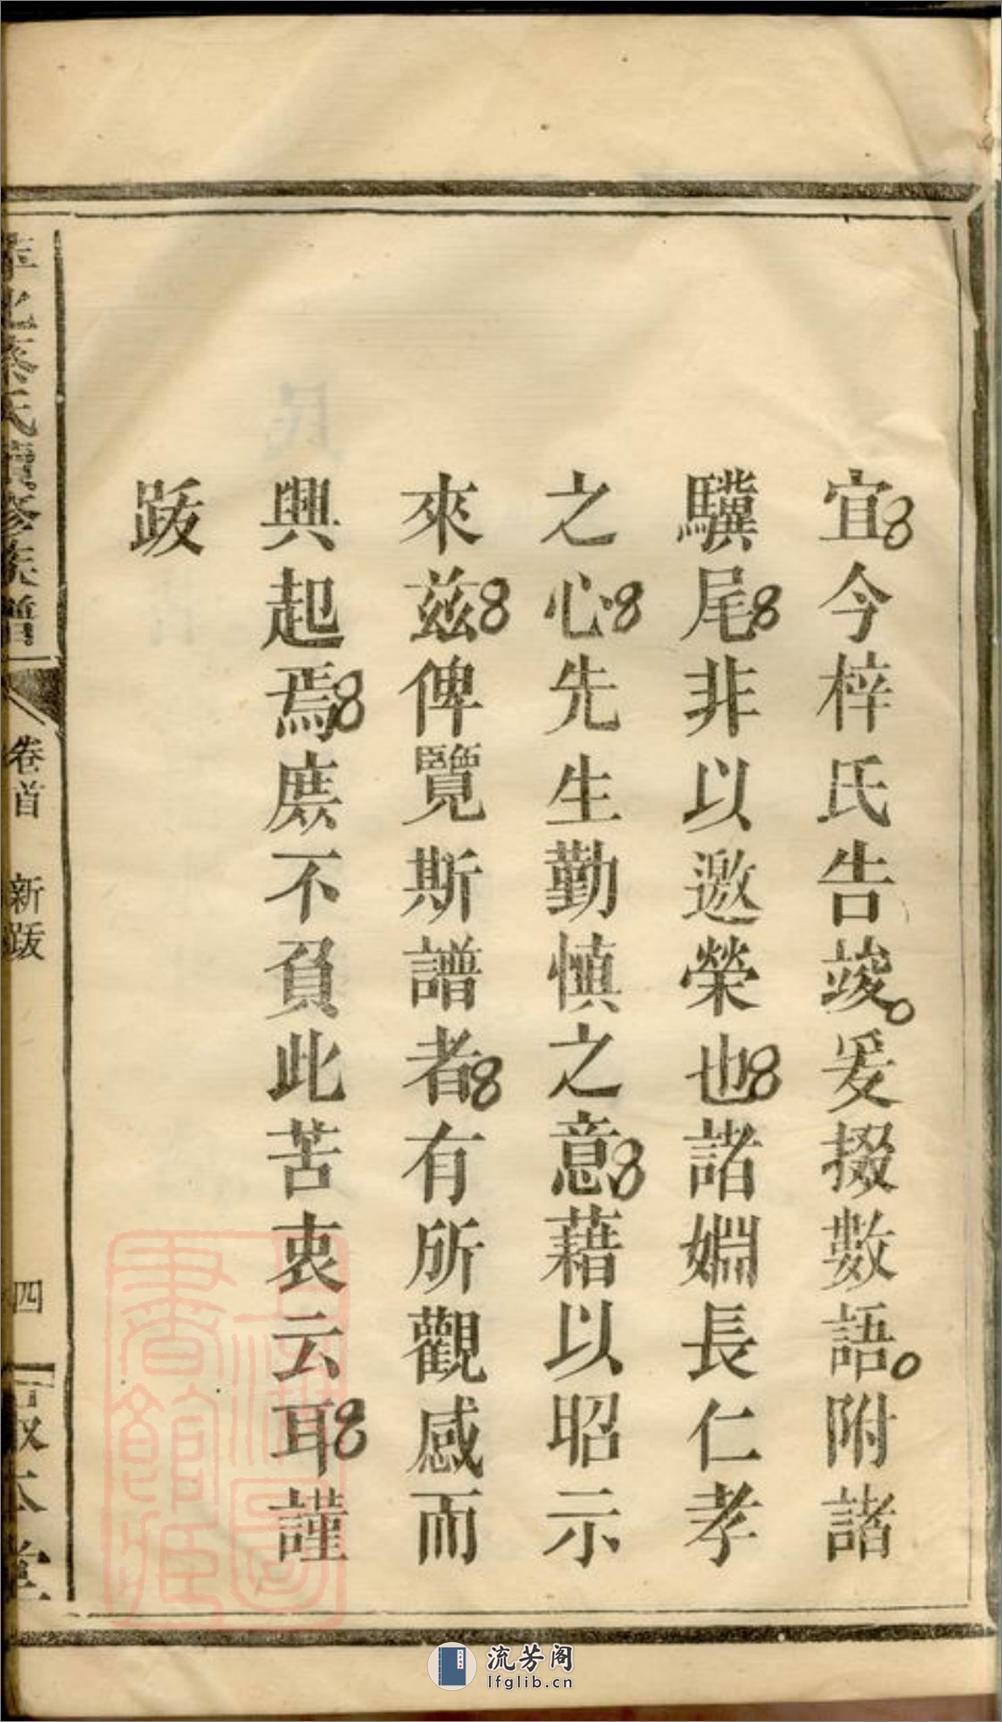 宜今梓氏告竣爰掇數語附諸
驥尾非以邀榮也諸婣長仁孝
之心先生勤慎之意藉以昭示
來茲俾覽斯譜者有所觀感而
興起焉庶不負此苦衷云耳謹
跋
氏續修族譜
卷首 新跋
四
敦本堂
流芳阁
lfglib.cn